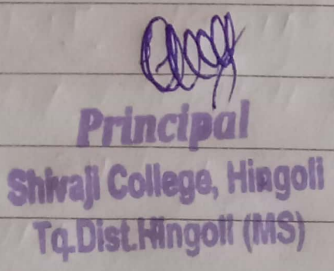 Principal
Shivaji College, Hingoli
Tq.Dist.Hingoli (MS)